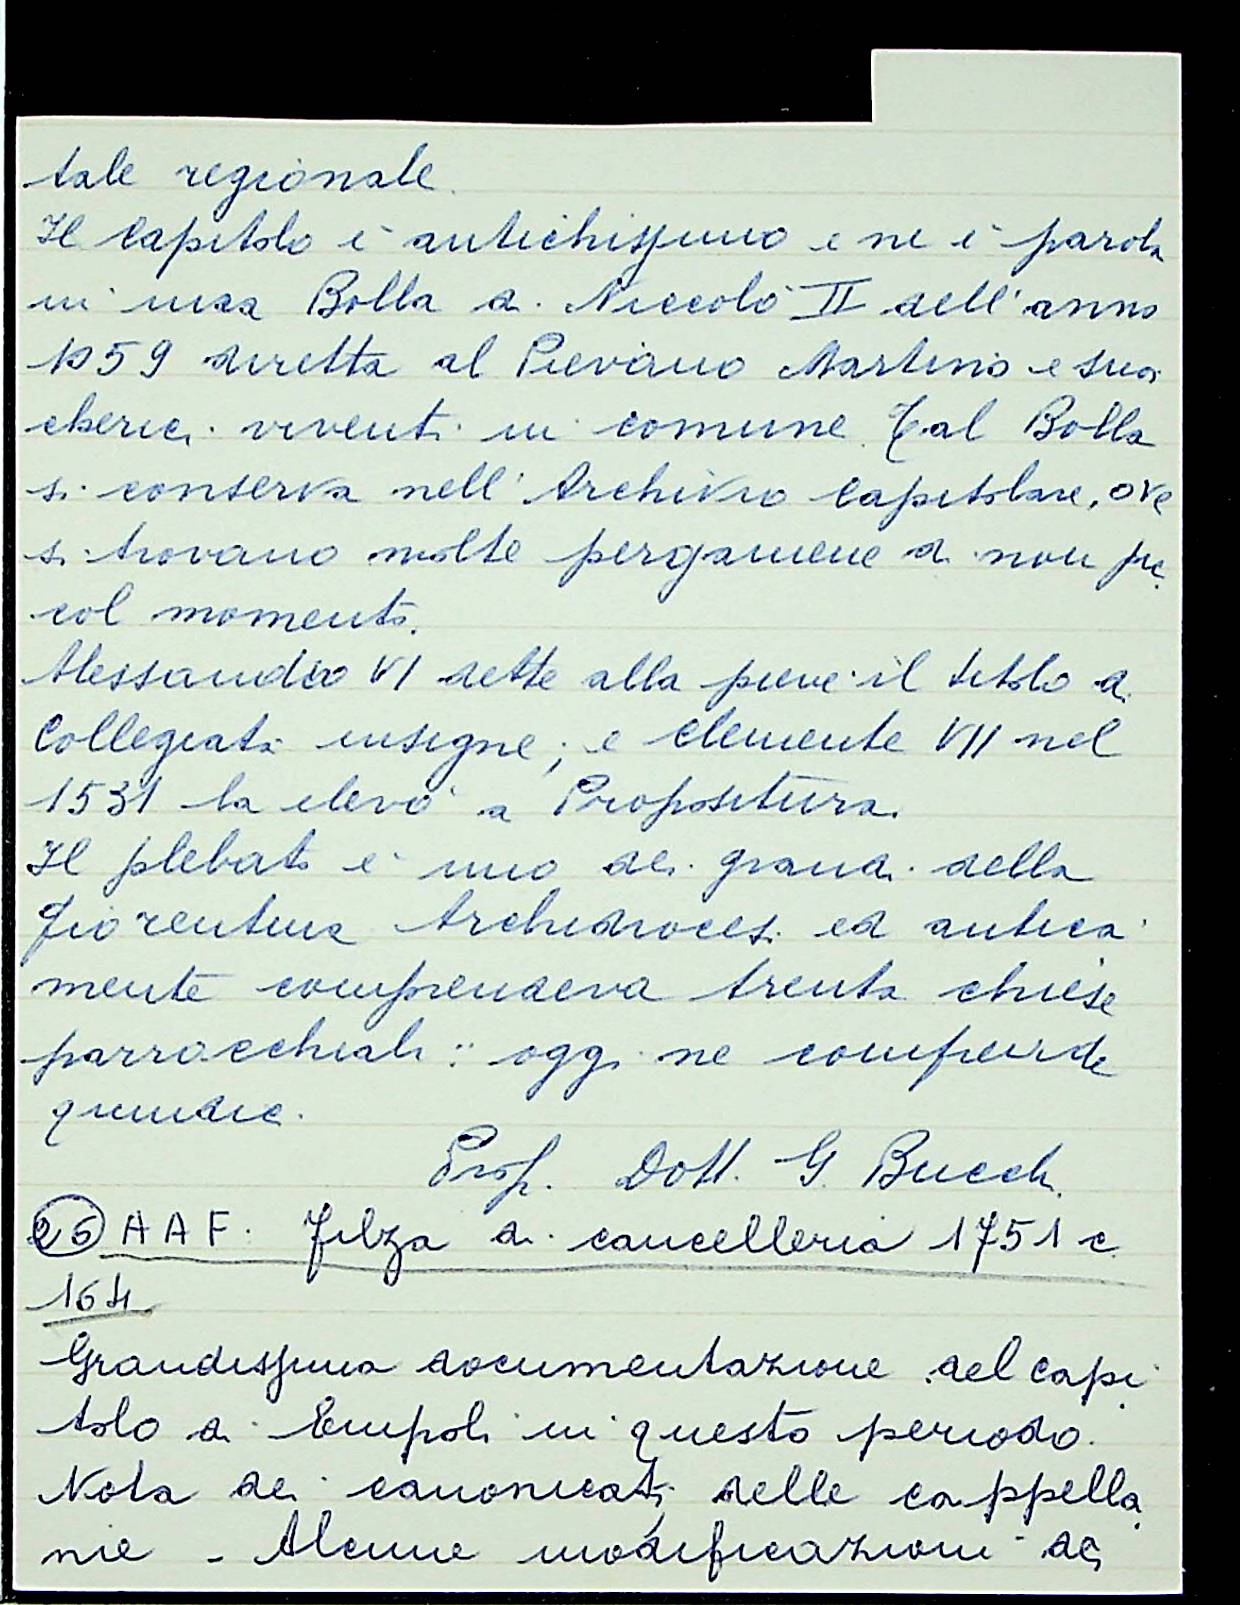 tale regionale.
Il Capitolo è antichissimo e ne è parola
in una Bolla di Niccolò II dell'anno
1059 diretta al Pievano Martino e suoi
cherici viventi in comune. Tal Bolla
si conserva nell'Archivio Capitolare, ove
si trovano molte pergamene di non pic
col momento.
Alessandro VI dette alla pieve il titolo di
Collegiata insigne; e Clemente VII nel
1531 la elevò a Propositura.
Il plebato è uno dei grandi della
Fiorentina Archidiocesi ed antica
mente comprendeva trenta chiese
parrocchiali: oggi ne comprende
quindici.
Prof. Dott. G. Bucchi
26 A A F. Filza di cancelleria 1751 c.
164
Grandissima documentazione del capi
tolo di Empoli in questo periodo.
Nota dei canonicati, delle cappella
nie - Alcune modificazioni dei